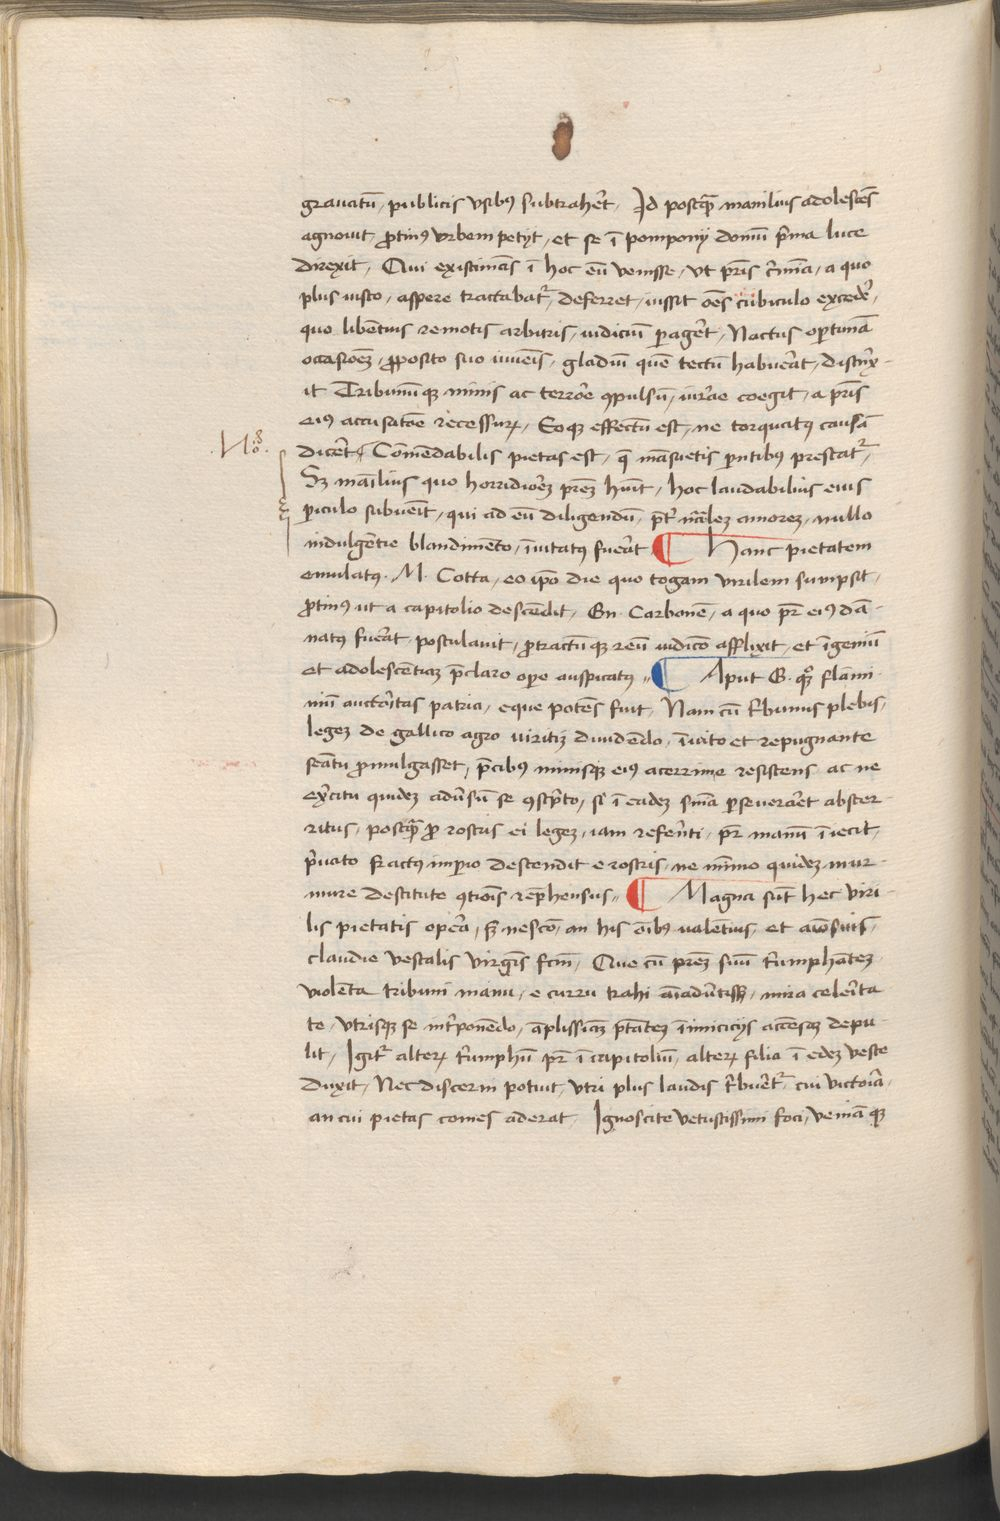 grauatū, publicis vsibꝰ subtrahēt. Id postqȝ manilius adolescēs
agnouit, ꝓtinꝰ vrbem petyt, et se ī pomponij domū p̄ma luce
direxit, Qui existimās ī hoc eū venisse, vt pr̄is cīmīa, a quo
plus iusto, aspere tractabat᷑, deferret, iussit oēs cubiculo excedē,
quo libentius remotis arbitris, iudiciū ꝑagēt, Nactus oportunā
occasioēȝ, ꝓposito suo iuuēis, gladiū quē tectū habuēat, distrīx-
it Tribunūqȝ minis ac terroē ꝯpulsū, iurāe coegit, a pr̄is
eiꝰ accusatōe recessuꝝ, Eoqȝ effectū est, ne torquatꝰ causā
.No. dicēt, Cōmēdabilis pietas est, q̄ māsuetis pr̄ntibꝰ prestat᷑,
Sȝ manlius quo horridioēȝ pr̄eȝ hūit, hoc laudabilius eius
ꝑiculo subuēit, qui ad eū diligendū, p̄t᷑ nāaleȝ amoreȝ, nullo
indulgētie blandimēto, īuitatꝰ fuēat ¶ Hanc pietatem
emulatꝰ. M. Cotta, eo ip̄o die quo togam virilem sumpsit,
ꝓtinꝰ ut a capitolio descēdit, Gn. Carbonē, a quo pr̄ eiꝰ dā-
natꝰ fuēat, postulauit, ꝓtractūqȝ reū iudicō afflixit, et īgeniū
et adolescētiaȝ p̄claro oꝑe auspicatꝰ ¶ Aput G. qȝ flami-
niū auctōitas patria, eque potēs fuit, Nam cū tr̄bunus plebis,
legeȝ de gallico agro uiritiȝ diuidēdo, īuito et repugnante
seātu ꝓmulgasset, p̄cibꝰ minisqȝ eiꝰ acerrime resistens ac ne
ex̄citu quideȝ aduersū se ꝯsc̄pto, si ī eadeȝ sn̄ia ꝑseuerāet abster-
ritus, postqȝ ꝓ rostris ei legeȝ, iam referēti, pr̄ manū īiecit,
p̄uato fractꝰ imꝑio descendit e rostris, ne mīmo quideȝ mur-
mure destitute ꝯtiōis rep̄hensus ¶ Magna sūt hec viri
lis pietatis opēa, sȝ nescō, an his oībꝰ valentius, et aīosius,
claudie vestalis virgīs fc̄m, Que cū pr̄eȝ suū tr̄umphāteȝ,
violēta tribuni manu, e curru trahi aīaduertissȝ, mira celeīta
te, vtrisqȝ se int᷑ponēdo, āplissiāȝ ptāteȝ īimicicijs accēsaȝ depu-
lit, Igit᷑ alteꝝ tr̄umphū pr̄ ī capitoliū, alteꝝ filia ī edeȝ veste
duxit, Nec discerni potuit, vtri plus laudis tr̄buēt᷑, cui victoīa,
an cui pietas comes aderat, Ignoscite vetustissimi foci, veniāqȝ